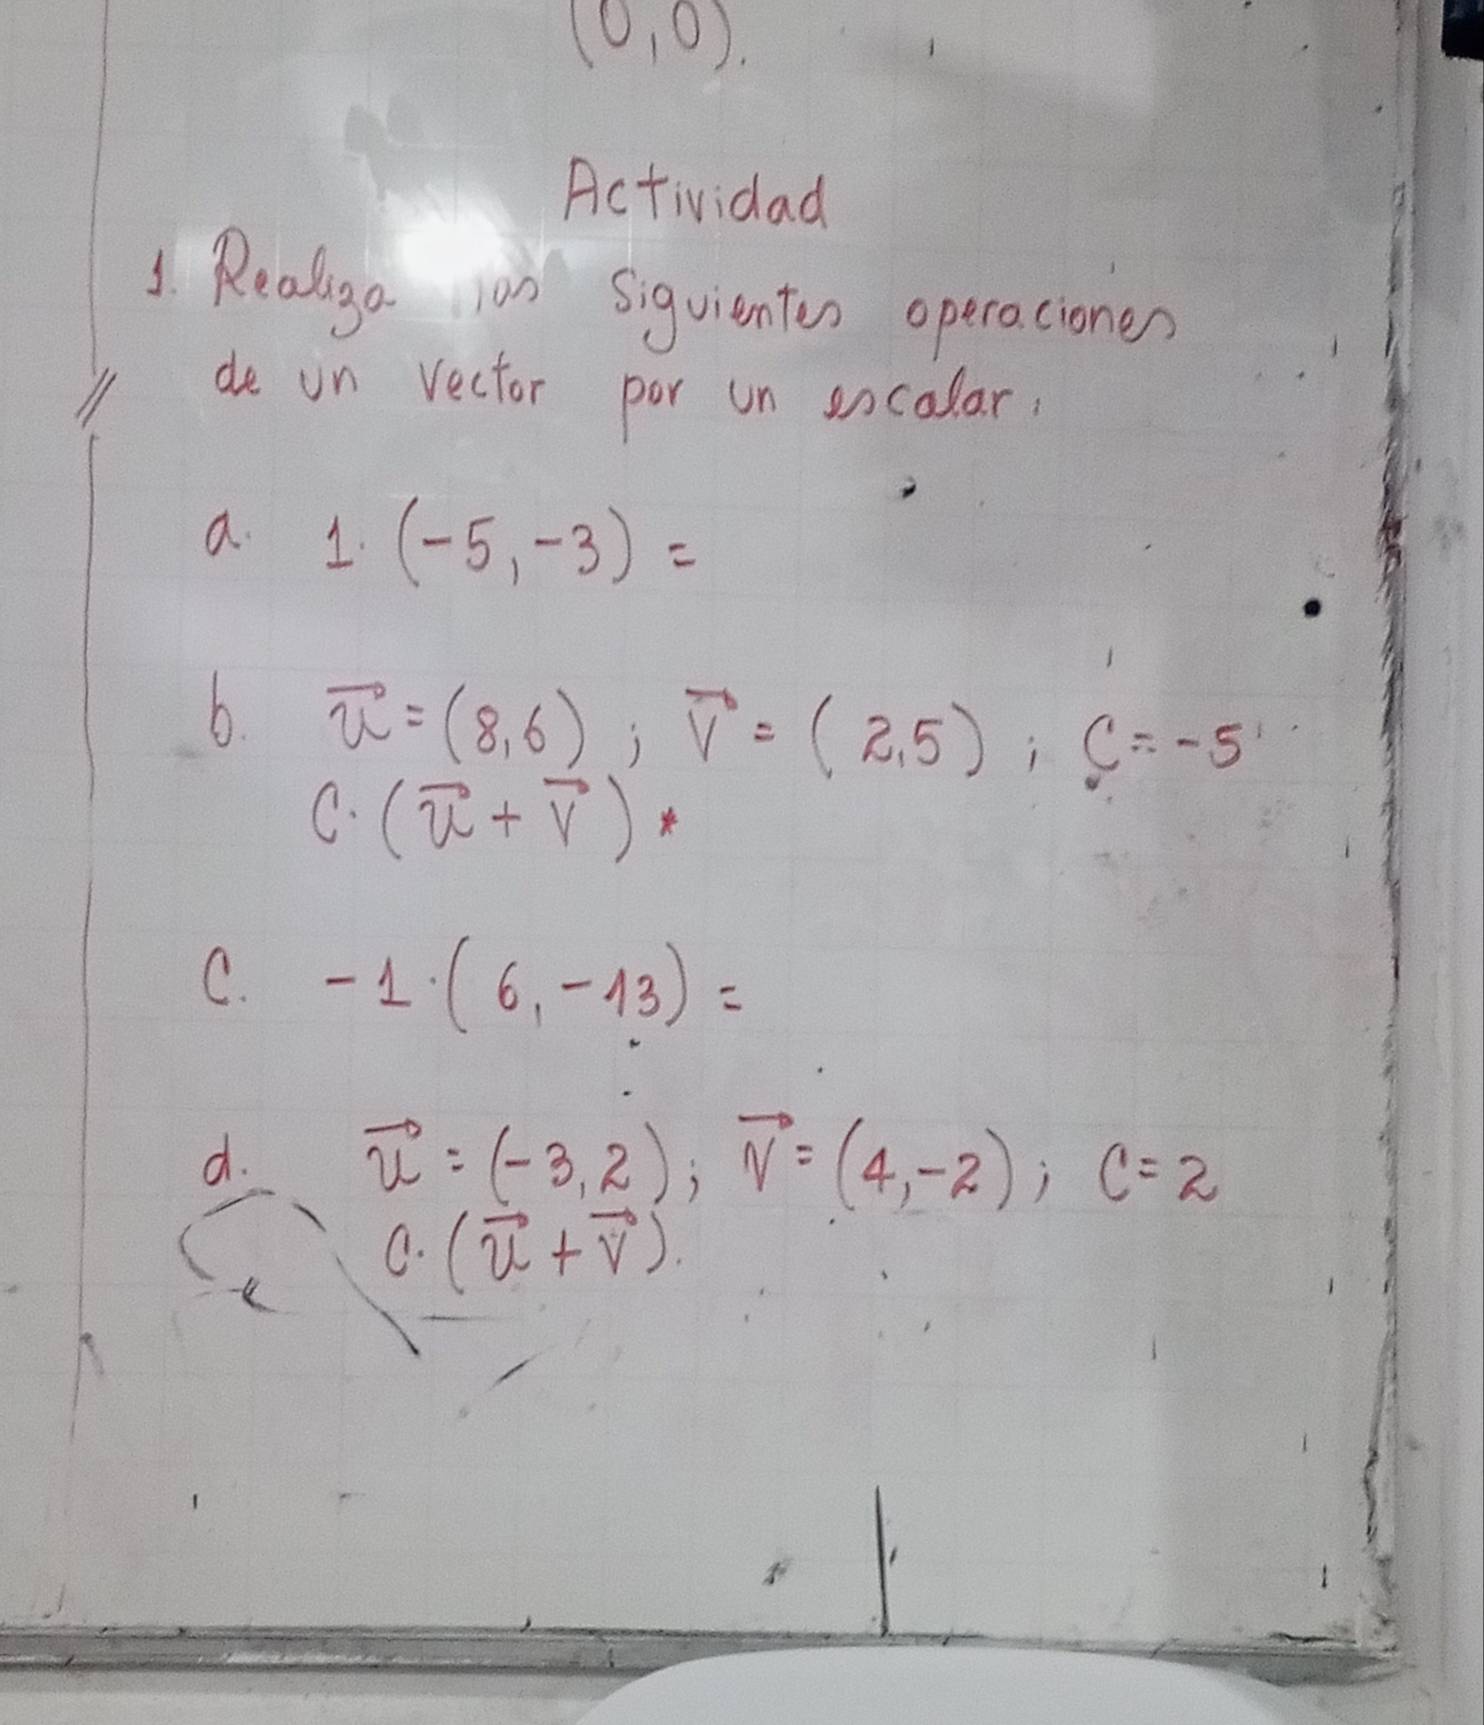 (0,0).
Actividad
1. Realiza las siguientes operaciones
de un vector por un escalar.
a. 1·(-5,-3) =
b. u⃗ = (8,6) ; v⃗ = (2,5) ; C = -5
C·(u⃗ + v⃗)*
C. -1·(6,-13) =
d. u⃗ = (-3,2) ; v⃗ = (4,-2) ; C = 2
C·(u⃗ + v⃗).